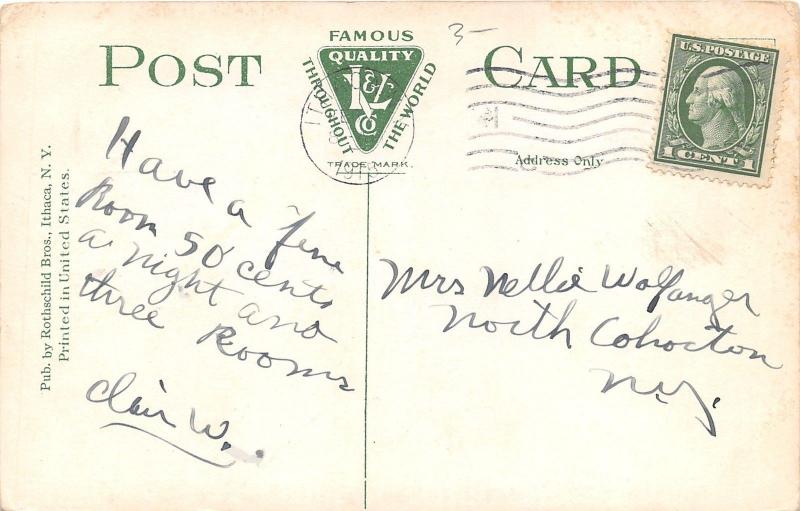 POST CARD
FAMOUS
QUALITY
THROUGHOUT THE WORLD
CO
TRADE MARK.
3-
U.S. POSTAGE
1 CENT 1
Address Only
Pub. by Rothschild Bros., Ithaca, N. Y.
Printed in United States.
Have a fine
Room 50 cents
a night and
three Rooms
Clair W.
Mrs Nellie Wolfanger
North Cohocton
N.Y.